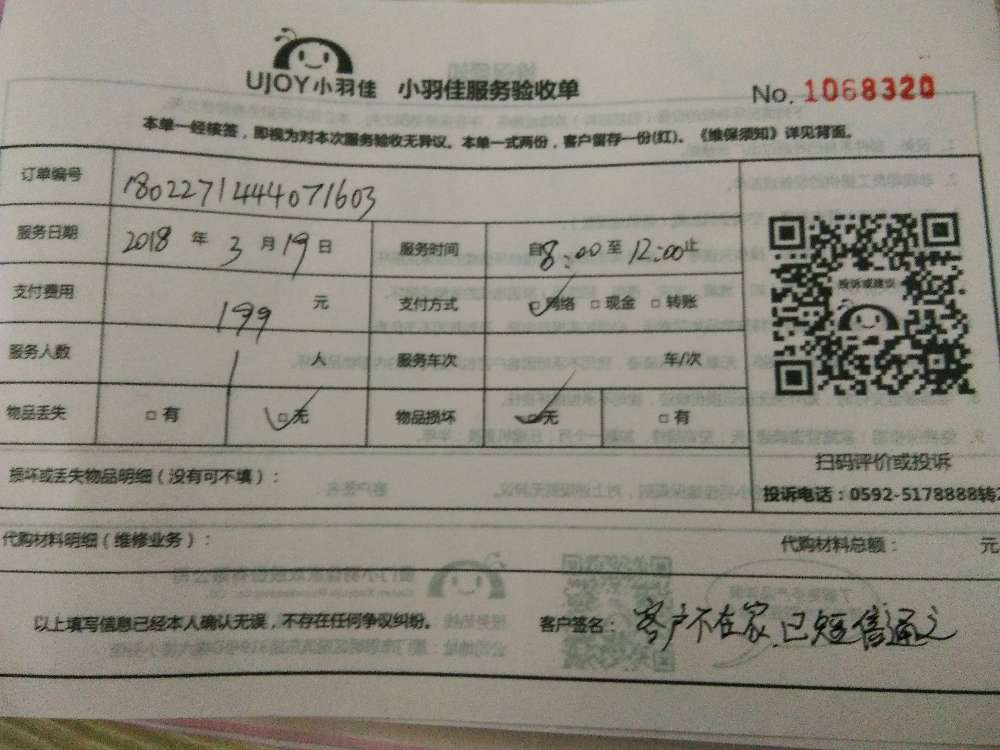 UJOY小羽佳 小羽佳服务验收单
No. 1068320
本单一经核签，即视为对本次服务验收无异议。本单一式两份，客户留存一份(红)。《维保须知》详见背面。
订单编号 180227144407​1603
服务日期 2018 年 3 月 19 日 服务时间 自8:00 至 12:00止
支付费用 199 元 支付方式 ☑网络 □现金 □转账
服务人数 1 人 服务车次 车/次
物品丢失 □有 ☑无 物品损坏 ☑无 □有
投诉或建议
扫码评价或投诉
投诉电话：0592-5178888转2
损坏或丢失物品明细（没有可不填）：
代购材料明细（维修业务）： 代购材料总额： 元
以上填写信息已经本人确认无误，不存在任何争议纠纷。 客户签名： 客户不在家,已短信通知